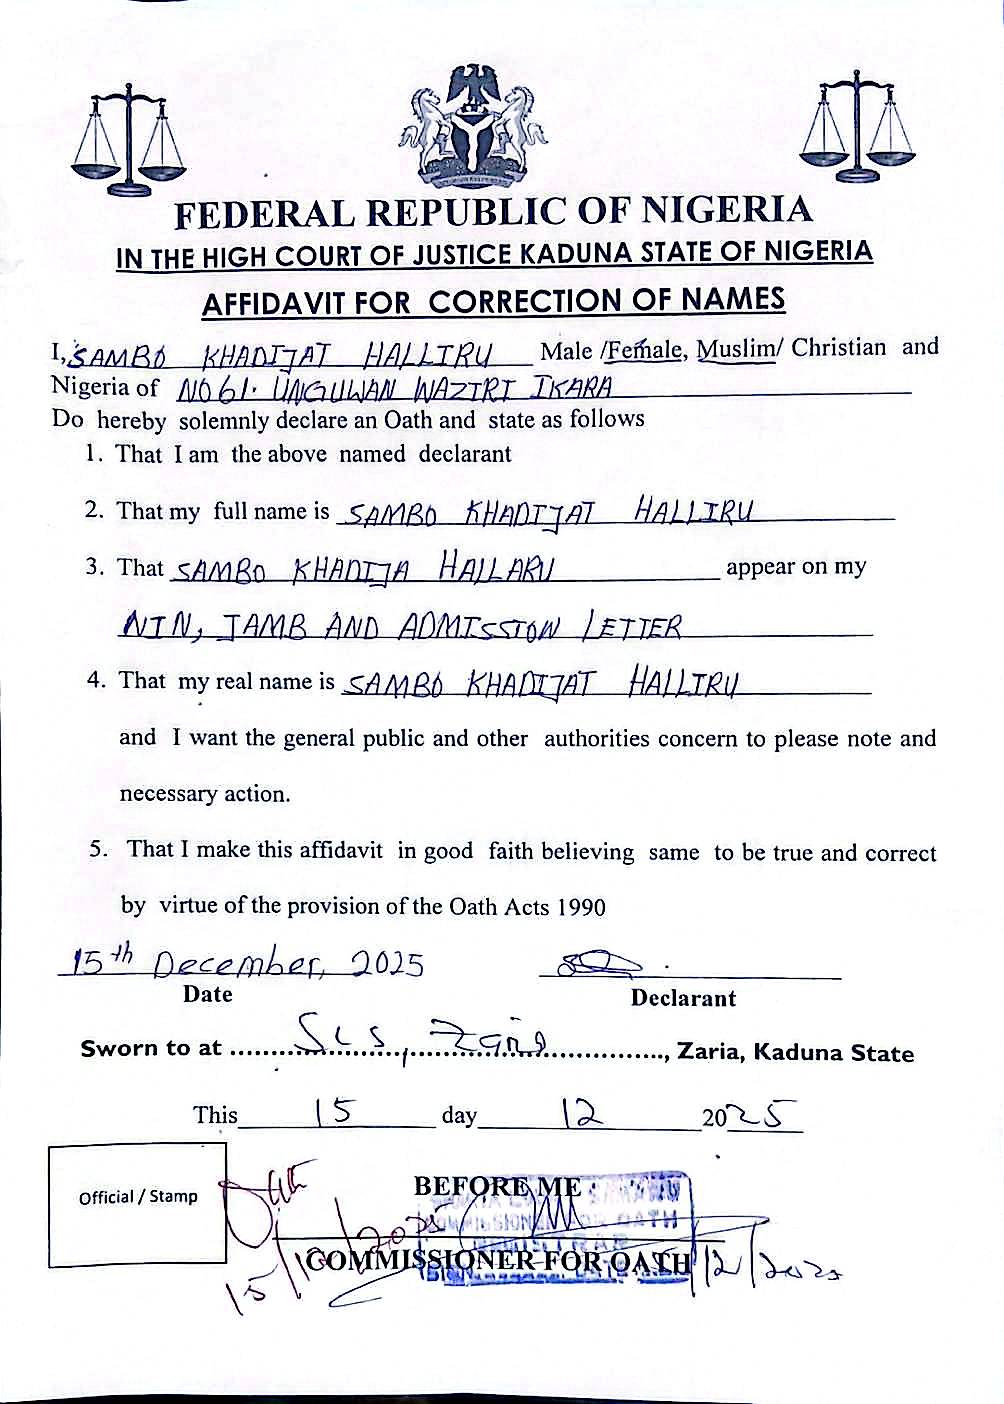 FEDERAL REPUBLIC OF NIGERIA
IN THE HIGH COURT OF JUSTICE KADUNA STATE OF NIGERIA
AFFIDAVIT FOR CORRECTION OF NAMES
I, SAMBO KHADIJAT HALLIRU Male /Female, Muslim/ Christian and
Nigeria of NO 61. UNGUWAN WAZIRI IKARA
Do hereby solemnly declare an Oath and state as follows
1. That I am the above named declarant
2. That my full name is SAMBO KHADIJAT HALLIRU
3. That SAMBO KHADIJA HALLARU appear on my
NIN, JAMB AND ADMISSION LETTER
4. That my real name is SAMBO KHADIJAT HALLIRU
and I want the general public and other authorities concern to please note and
necessary action.
5. That I make this affidavit in good faith believing same to be true and correct
by virtue of the provision of the Oath Acts 1990
15th December, 2025
Date
Declarant
Sworn to at ........, ........, Zaria, Kaduna State
This 15 day 12 2025
Official / Stamp
BEFORE ME
COMMISSIONER FOR OATH
COMMISSIONER FOR OATH
REGISTRAR